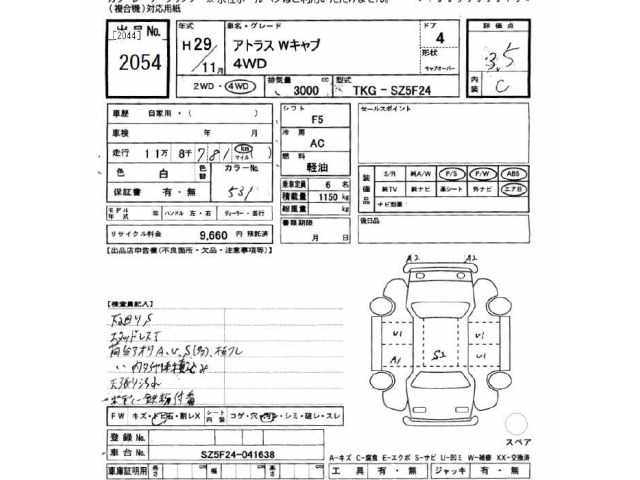 (複合機)対応用紙
出品No.
[2044]
2054
年式
H29/11月
車名・グレード
アトラス Wキャブ
4WD
ドア
4
形状
キャブオーバー
評価点
3.5
内装
C
2WD・4WD
排気量
3000
cc
型式
TKG - SZ5F24
車歴
自家用・( )
車検
年 月
走行
11万 8千 781
km
マイル
色
白
色替
カラーNo.
531
保証書
有・無
モデル年式
年
ハンドル 左・右
ディーラー・並行
リサイクル料金
9,660 円 預託済
シフト
F5
冷房
AC
燃料
軽油
乗車定員
6 名
積載量
1150 kg
総重量
kg
書類期限
月 日
セールスポイント
装備品
S/R
純A/W
P/S
P/W
ABS
純TV
純ナビ
革シート
外ナビ
エアB
ナビ型番
後日品
【出品店申告欄(不良箇所・欠品・注意事項等)】
【検査員記入】
下回りS
スタッドレスT
FW
キズ・トビ石・割レX
シート内装
コゲ・穴・汚レ・シミ・破レ・スレ
登録No.
車台No.
SZ5F24-041638
車庫証明用
長さ
cm
幅
cm
高さ
cm
A2
A2
U1
U1
A1
S2
U1
スペア
A-キズ C-腐食 E-エクボ S-サビ U-凹ミ W-補修 XX-交換済
工具
有・無
ジャッキ
有・無